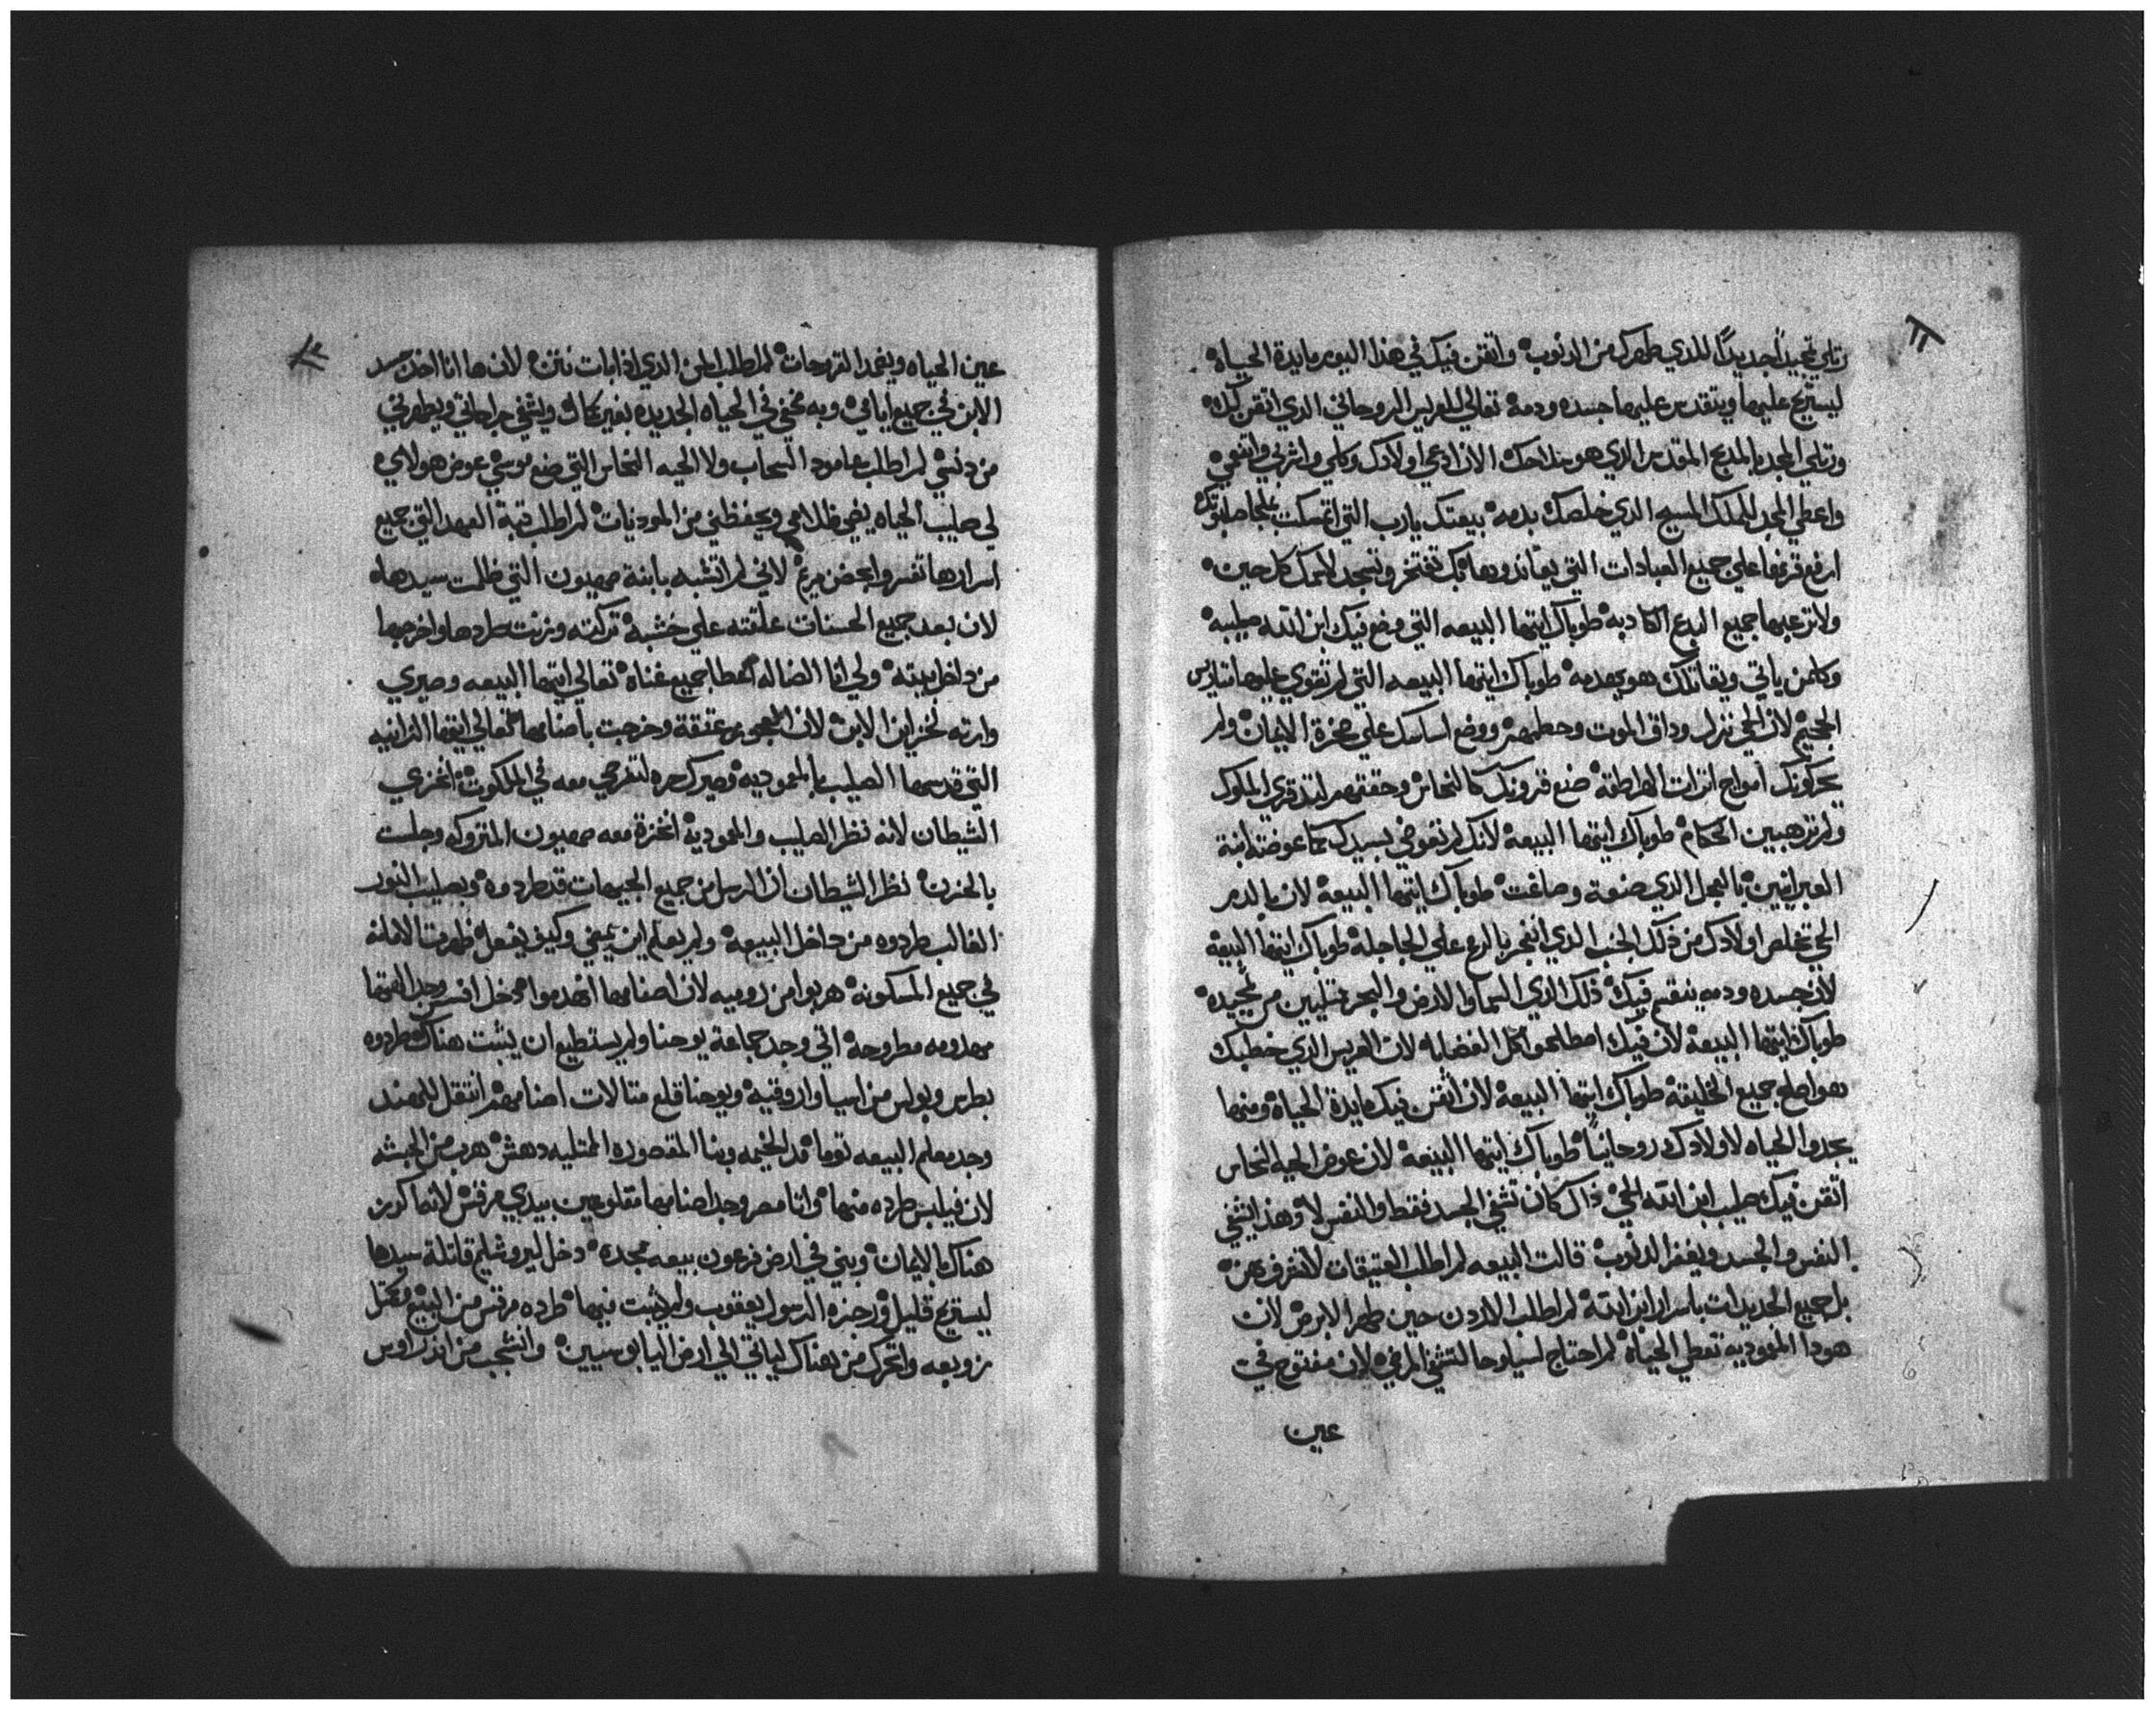 رتلي تمجيداً جديداً للذي طهرك من الدنوب وانقن فيك في هذا اليوم مايدة الحياه
ليستريح عليها ويتقدس عليها جسده ودمه تعالي للعريس الروحاني الذي اتقن لك
ورتلي المجد بالمدبح المقدس الذي هو بداحك الان ادعي اولادك وكلي واشربي واتنعمي
واعطي المجد للملك المسيح الذي خلصك بدمه بيعتك يارب التي اتمسكت بملجا صلبوتك
ارفع قرنها علي جميع العبادات التي يعاندوها بك تفتخر وتسجد لاسمك كل حين
ولا ترعبها جميع البدع الكادبه طوباك ايتها البيعه التي وضع فيك ابن الله صليبه
وكلمن ياتي ويقاتلك هو يهدمه طوباك ايتها البيعه التي لم تقوي عليها متاريس
الجحيم لان الحي نزل وداق الموت وحطمهم ووضع اساسك علي صخرة الايمان ولم
يحركونك امواج انزات الهراطقه صنع قرونك كالنحاس وحققتهم لتدقي الملوك
ولم ترهبين الحكام طوباك ايتها البيعه لانك لم تعوضي بسيدك كما عوضته ابنة
العبرانيين بالعجل الذي صنعوه وصاغت طوباك ايتها البيعه لان بالدم
الحي تخلص اولادك من ذلك الجنب الذي انفجر بالرمح علي الجاجلة طوباك ايتها البيعه
لان جسده ودمه ينقسم فيك ذلك الذي السما والارض والبحر ممتليين من تمجيده
طوباك ايتها البيعه لان فيك اصطلحوا كل الغضابا لان العريس الذي خطبك
هو اصلح جميع الخليقة طوباك ايتها البيعه لان اتقن فيك مايدة الحياه ومنها
يجدوا الحياه لاولادك روحانياً طوباك ايتها البيعه لان عوض الحيه النحاس
اتقن فيك صليب ابن الله الحي داك كان تشفي الجسد فقط والنفس لا وهذا تشفي
النفس والجسد ويغفر الدنوب قالت البيعه لم اطلب العتيقات لانعرف عن
بل جميع الجديدات باسرار ابن الله لم اطلب الاردن حين طهر الابرص لان
هودا المعموديه تعطي الحياه لم احتاج لسيلوحا لتشفي المرضي لان مفتوح في
عين
عين الحياه ويضمد القرحات لم اطلب المن الذي ادا بات نتن لان ها انا اخذ جسد
الابن في جميع ايامي وبه تحفي في الحياه الجديده بغير نكال ويشفي جراحاتي ويطهرني
من دنسي لم اطلب عامود السحاب ولا الحيه النحاس التي صنع موسي عوض هولاي
لي صليب الحياه يضي ظلامي ويحفظني من المودنيات لم اطلب قبة العهد التي جميع
اسرارها تفسروا لاني لم اتشبه بابنة صهيون التي ظلمت سيدها
لان بعد جميع الحسنات علقته علي خشبه تركته وزنت طردها واخرجها
من داخل بيته ولي انا الضاله اعطا جميع غناه تعالي ايتها البيعه وصيري
وارته لخزاين الابن لان العجوز عتقة وخرجت باصنامها تعالي ايتها الزانيه
التي قدسها الصليب بالمعموديه وصيرك حره لتفرحي معه في الملكوت انخزي
الشيطان لانه نظر الصليب والمعموديه انخزة معه صهيون المتروكه وجلت
بالحزن نظر الشيطان ان الرسل من جميع الجيهات قد طردوه وبصليب النور
الغالب طردوه من داخل البيعه ولم يعلم اين يمضي وكيف يفعل ظهرت الامانة
في جميع المسكونه هربوا من روميه لان اصنامها انهدموا دخل افسس وجد الهتها
مهدومه مطروحه اتي وجد جماعة يوحنا ولم يستطيع ان يثبت هناك طردوه
بطرس وبولس من اسيا واروقيه ويوحنا قلع متالات اصنامهم انتقل للهند
وجد معلم البيعه توما قد الخيمه وبنا المقصوره الممتليه دهش هرب من الحبشه
لان فيلبس طرده منها واتا مصر وجد اصنامها مقلوعين بيدي مرقس لانها كورز
هناك بالايمان وبني في ارض فرعون بيعه ممجده دخل ليروشليم قاتلة سيدها
ليستريح قليل وزجره الرسول يعقوب ولم يثبت فيها طرده مرقس من البيع
زوبعه واتحرك من هناك لياتي الي ارض اليابوسيين وانشجب من اندراوس